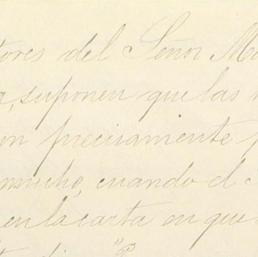 tores del Señor Ma
a, suponen que las
on precisamente
mucho, cuando el
en la carta en que